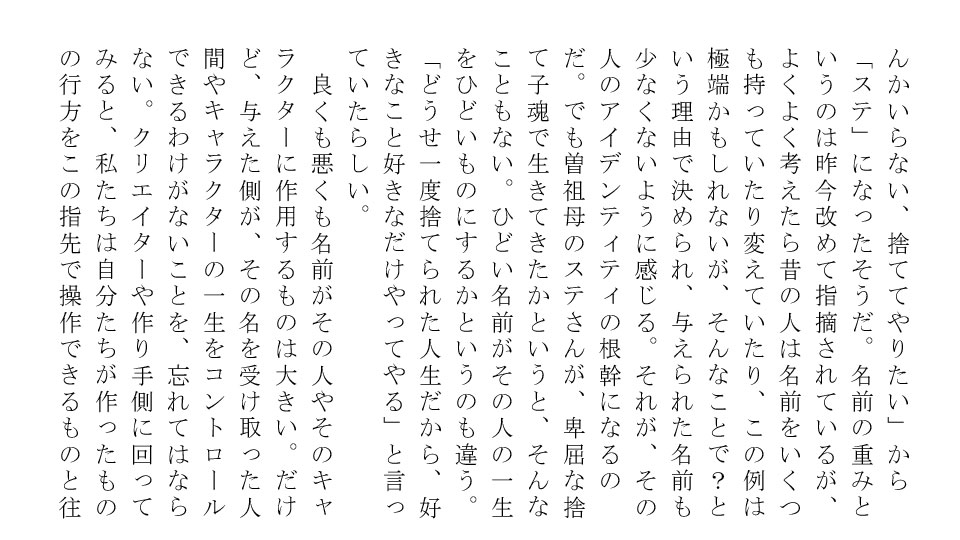 んかいらない、捨ててやりたい」から
「ステ」になったそうだ。名前の重みと
いうのは昨今改めて指摘されているが、
よくよく考えたら昔の人は名前をいくつ
も持っていたり変えていたり、この例は
極端かもしれないが、そんなことで？と
いう理由で決められ、与えられた名前も
少なくないように感じる。それが、その
人のアイデンティティの根幹になるの
だ。でも曽祖母のステさんが、卑屈な捨
て子魂で生きてきたかというと、そんな
こともない。ひどい名前がその人の一生
をひどいものにするかというのも違う。
「どうせ一度捨てられた人生だから、好
きなこと好きなだけやってやる」と言っ
ていたらしい。
　良くも悪くも名前がその人やそのキャ
ラクターに作用するものは大きい。だけ
ど、与えた側が、その名を受け取った人
間やキャラクターの一生をコントロール
できるわけがないことを、忘れてはなら
ない。クリエイターや作り手側に回って
みると、私たちは自分たちが作ったもの
の行方をこの指先で操作できるものと往